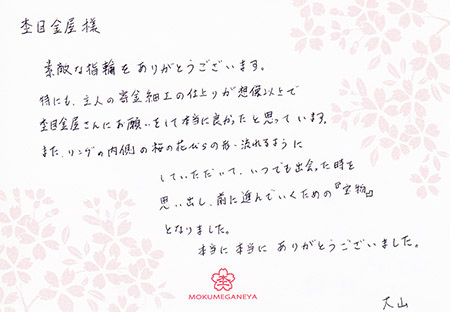 杢目金屋 様
素敵な指輪をありがとうございます。
特にも、主人の寄金細工の仕上りが想像以上で
杢目金屋さんにお願いをして本当に良かったと思っています。
また、リングの内側の桜の花びらの形、流れるように
していただいて、いつでも出会った時を
思い出し、前に進んでいくための『宝物』
となりました。
本当に本当にありがとうございました。
MOKUMEGANEYA
大山